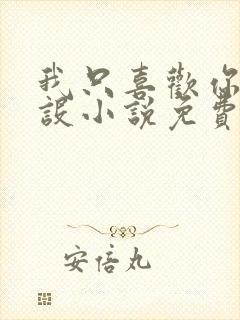 我只喜歡你
設小說免費
安倍丸